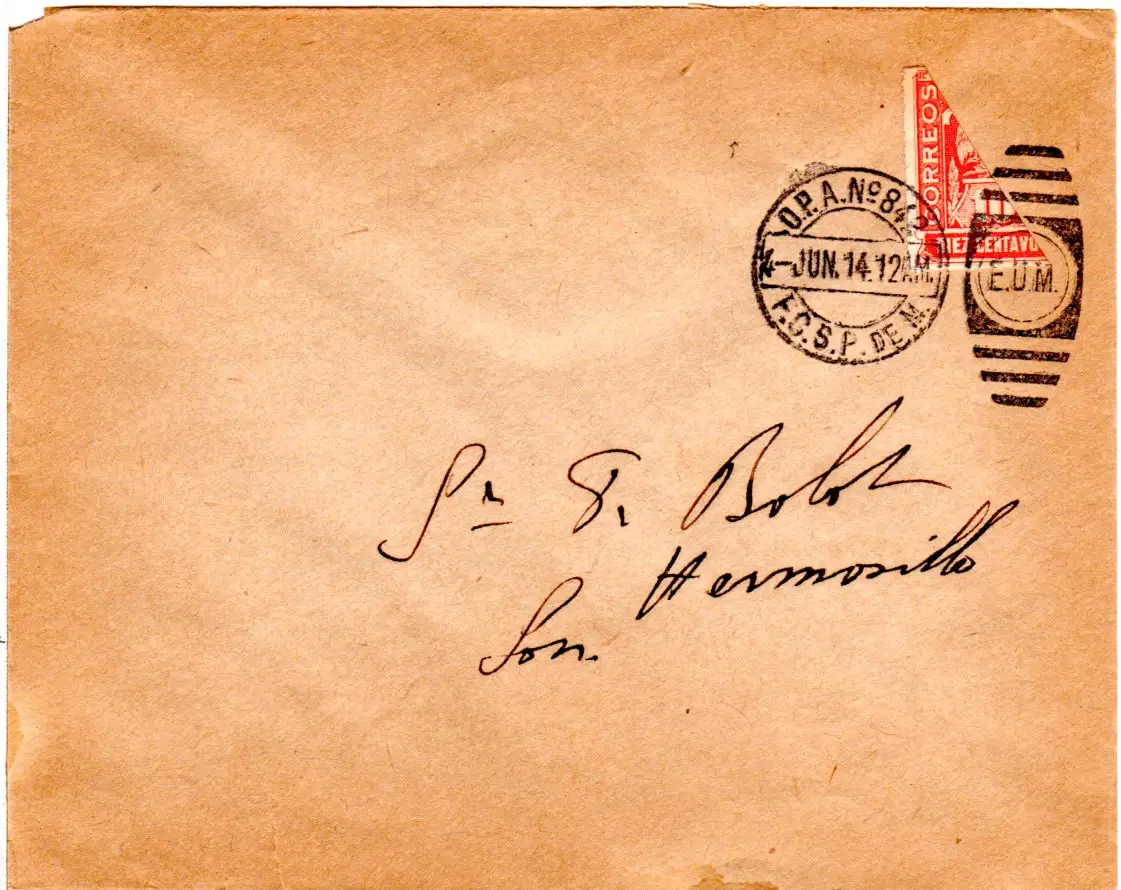 CORREOS
10
DIEZ CENTAVO
O.P.A. Nº 84
4-JUN. 14. 12 AM.
F.C.S.P. DE M.
E.U.M.
Sr F. Bolot
Hermosillo
Son.